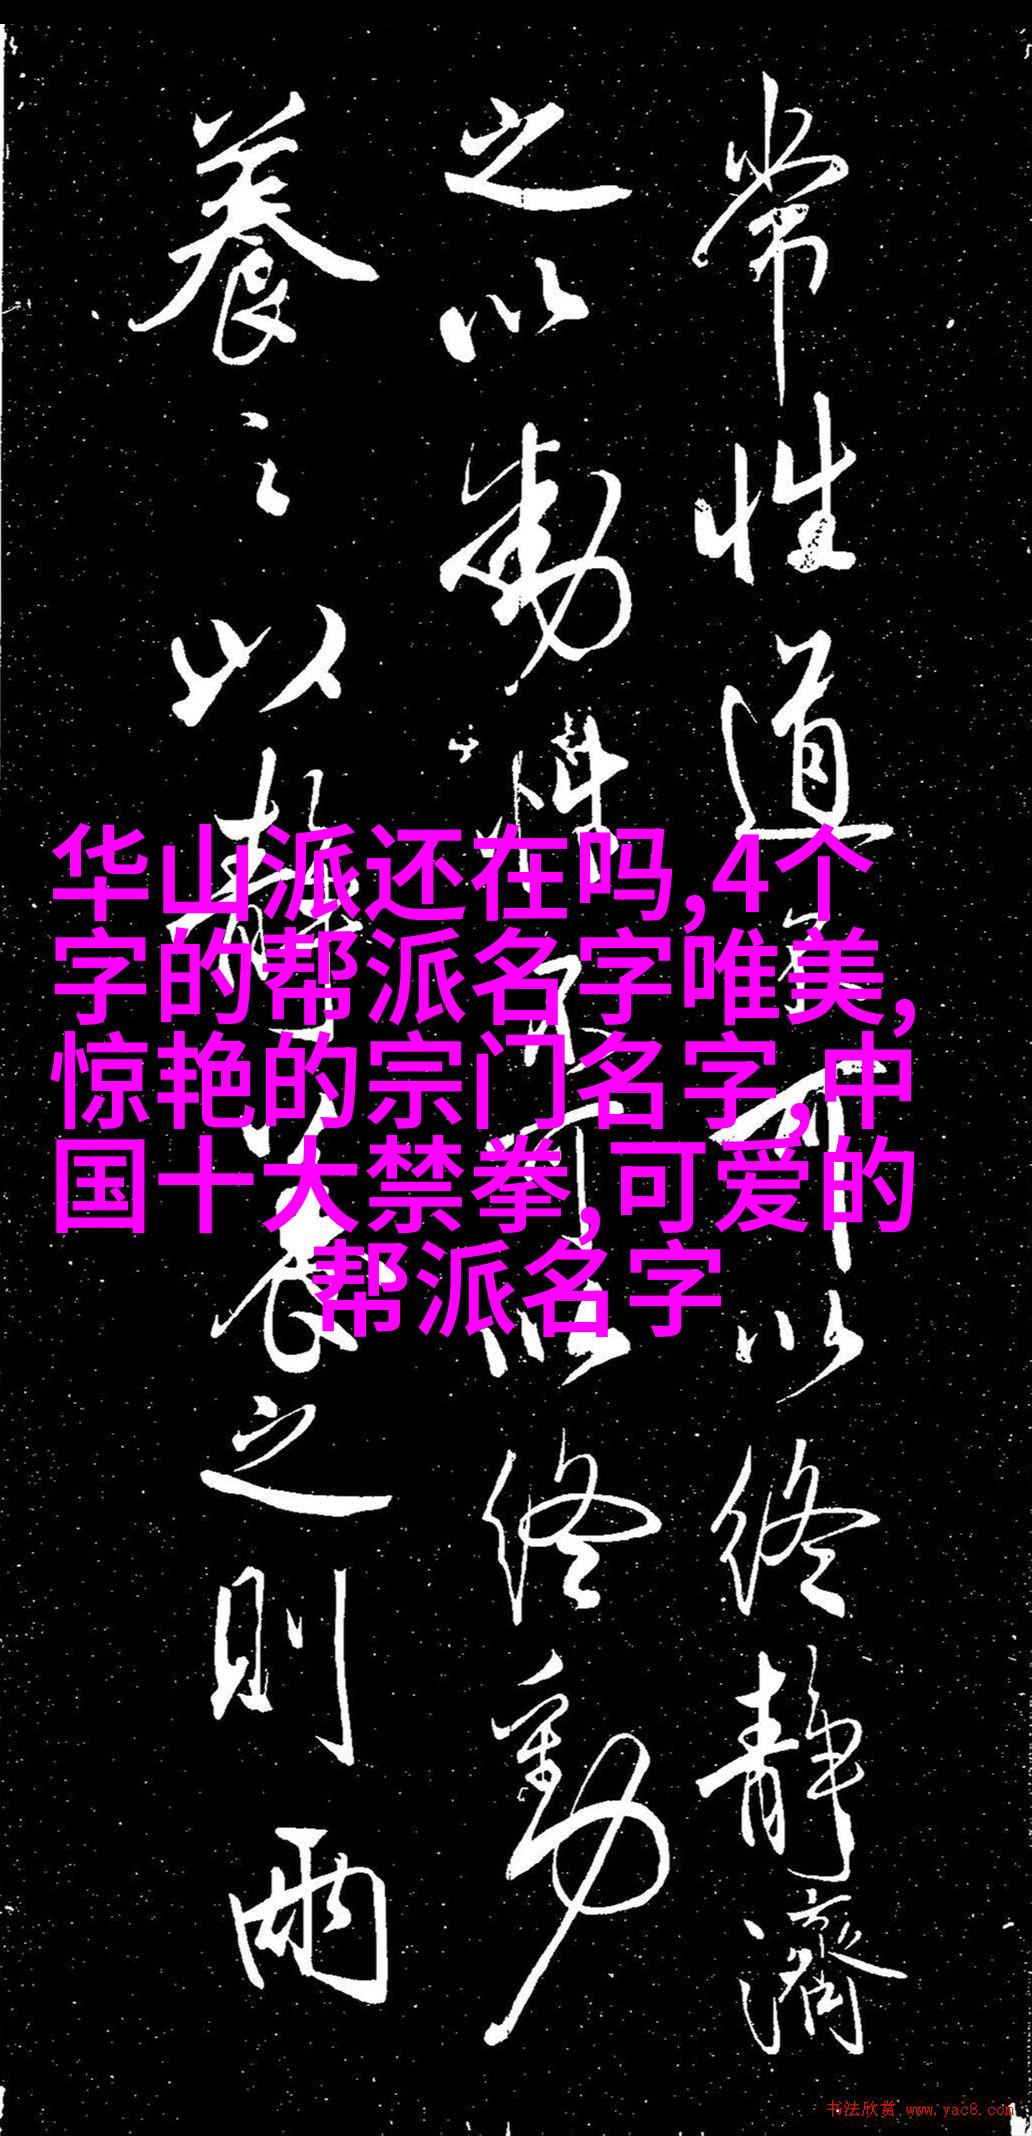 常性道不可以终静濟
之以動性不可以终動
養之以静養之則兩
华山派还在吗,4个
字的帮派名字唯美,
惊艳的宗门名字,中
国十大禁拳,可爱的
帮派名字
书法欣赏 www.yac8.com